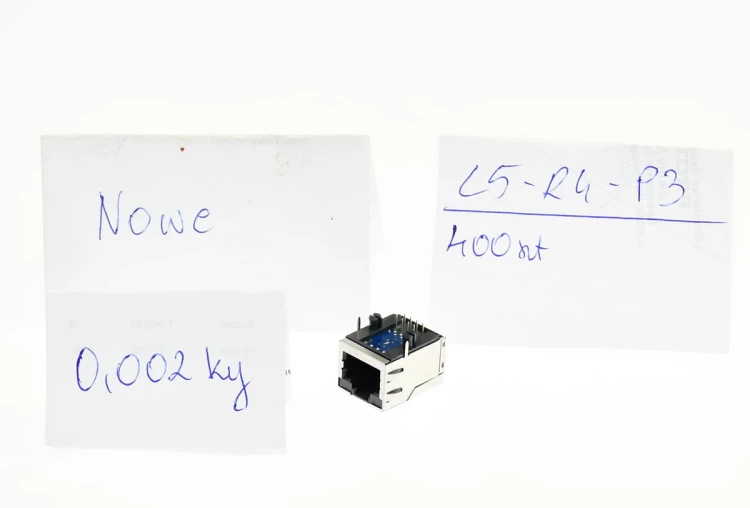 Nowe
0,002 kg
L5-R4-P3
400szt